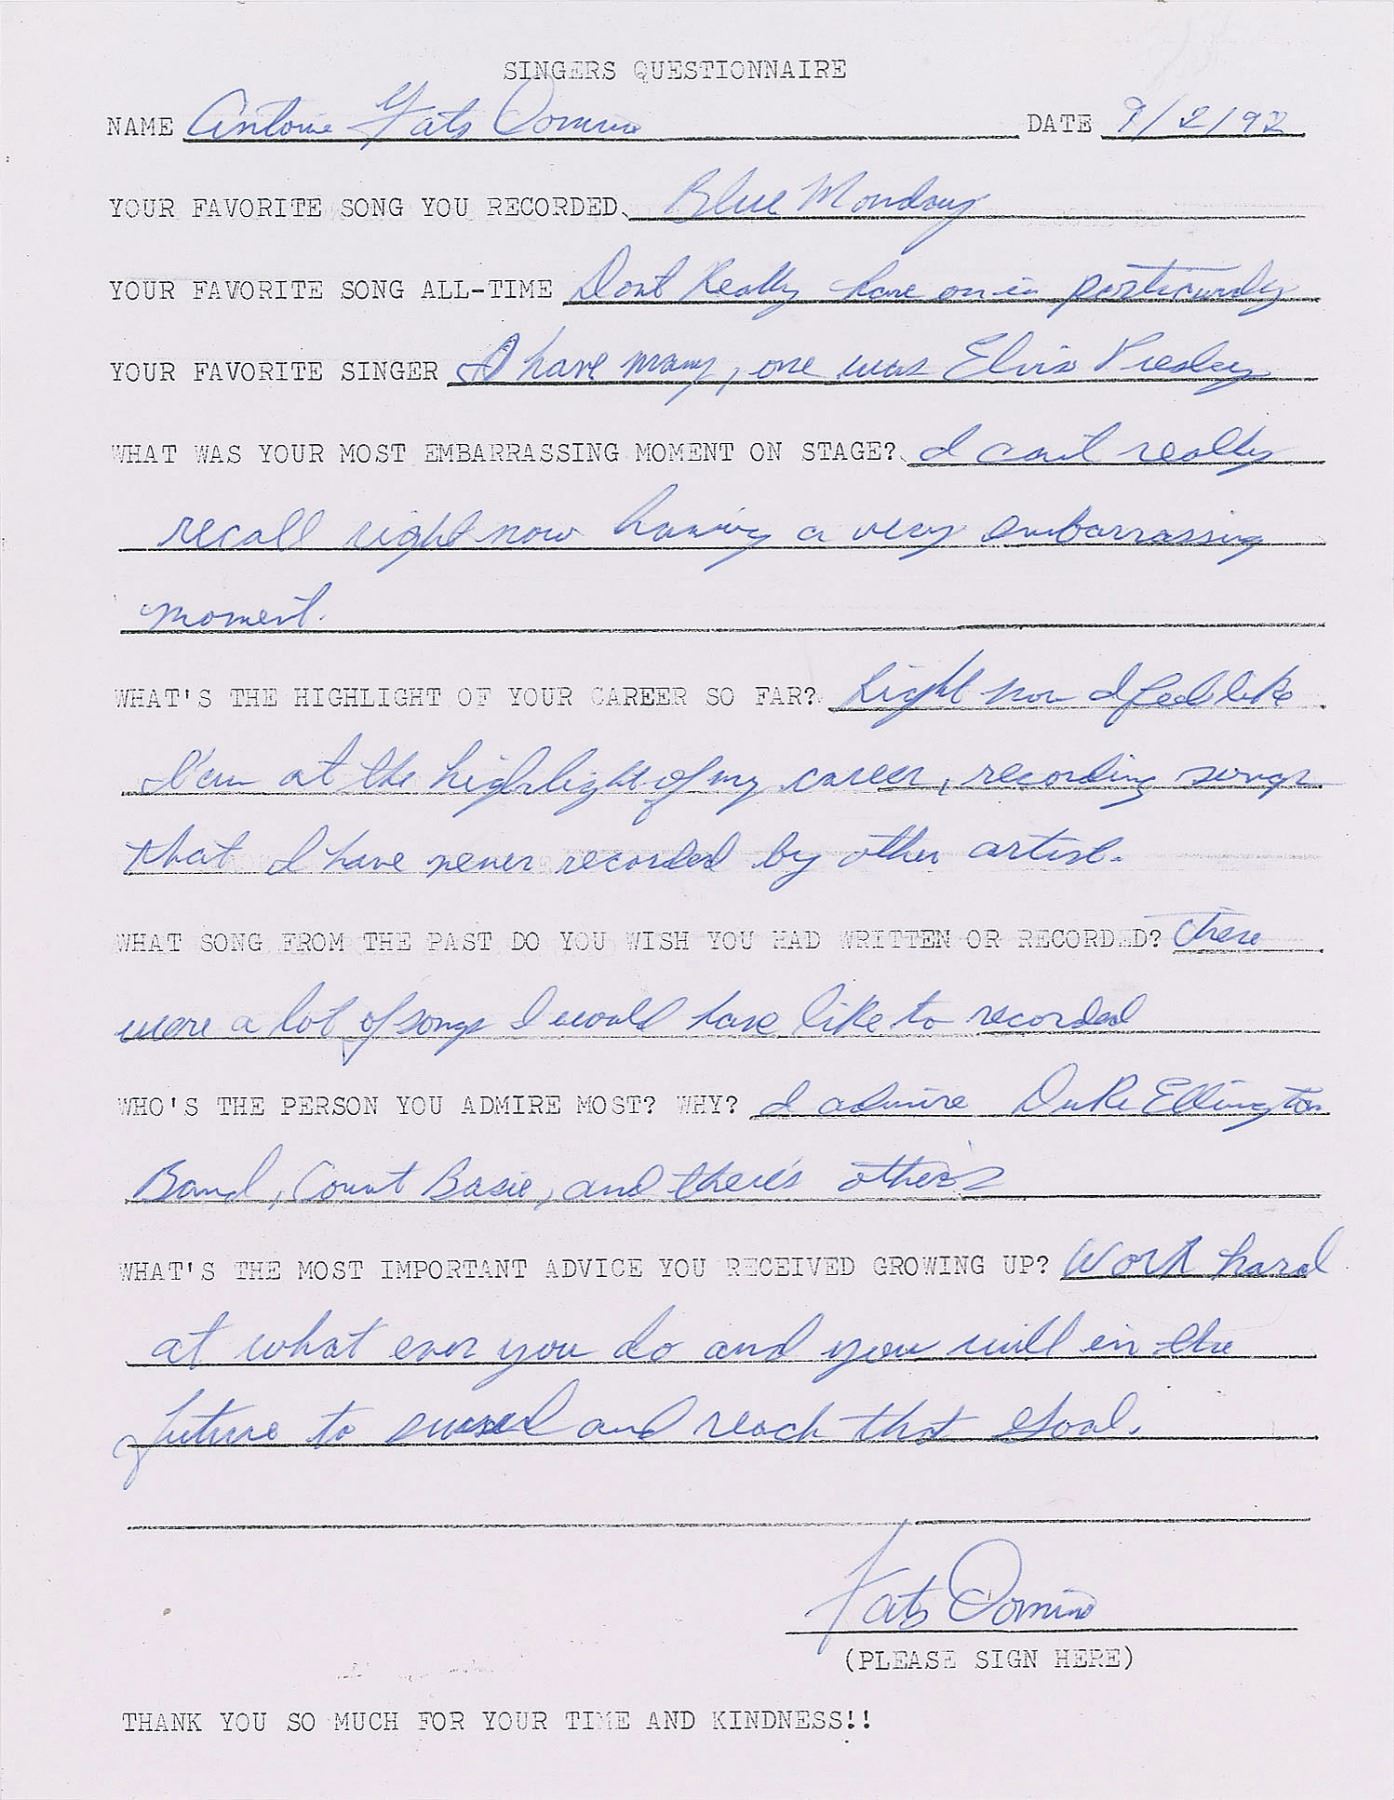 SINGERS QUESTIONNAIRE
NAME Antoine Fats Domino DATE 9/2/92
YOUR FAVORITE SONG YOU RECORDED. Blue Monday
YOUR FAVORITE SONG ALL-TIME Dont Really have one in
YOUR FAVORITE SINGER I have many, one was Elvis Presley
WHAT WAS YOUR MOST EMBARRASSING MOMENT ON STAGE? I can't really
recall right now having a very embarrassing
moment.
WHAT'S THE HIGHLIGHT OF YOUR CAREER SO FAR? Right now I feel like
I'am at the highlight of my career, recording songs
that I have never recorded by other artist.
WHAT SONG FROM THE PAST DO YOU WISH YOU HAD WRITTEN OR RECORDED? There
were a lot of songs I would have like to recorded
WHO'S THE PERSON YOU ADMIRE MOST? WHY? I admire Duke Ellington
Band, Count Basie, and there's other's
WHAT'S THE MOST IMPORTANT ADVICE YOU RECEIVED GROWING UP? Work hard
at what ever you do and you will in the
future to and reach that goal.
Fats Domino
(PLEASE SIGN HERE)
THANK YOU SO MUCH FOR YOUR TIME AND KINDNESS!!